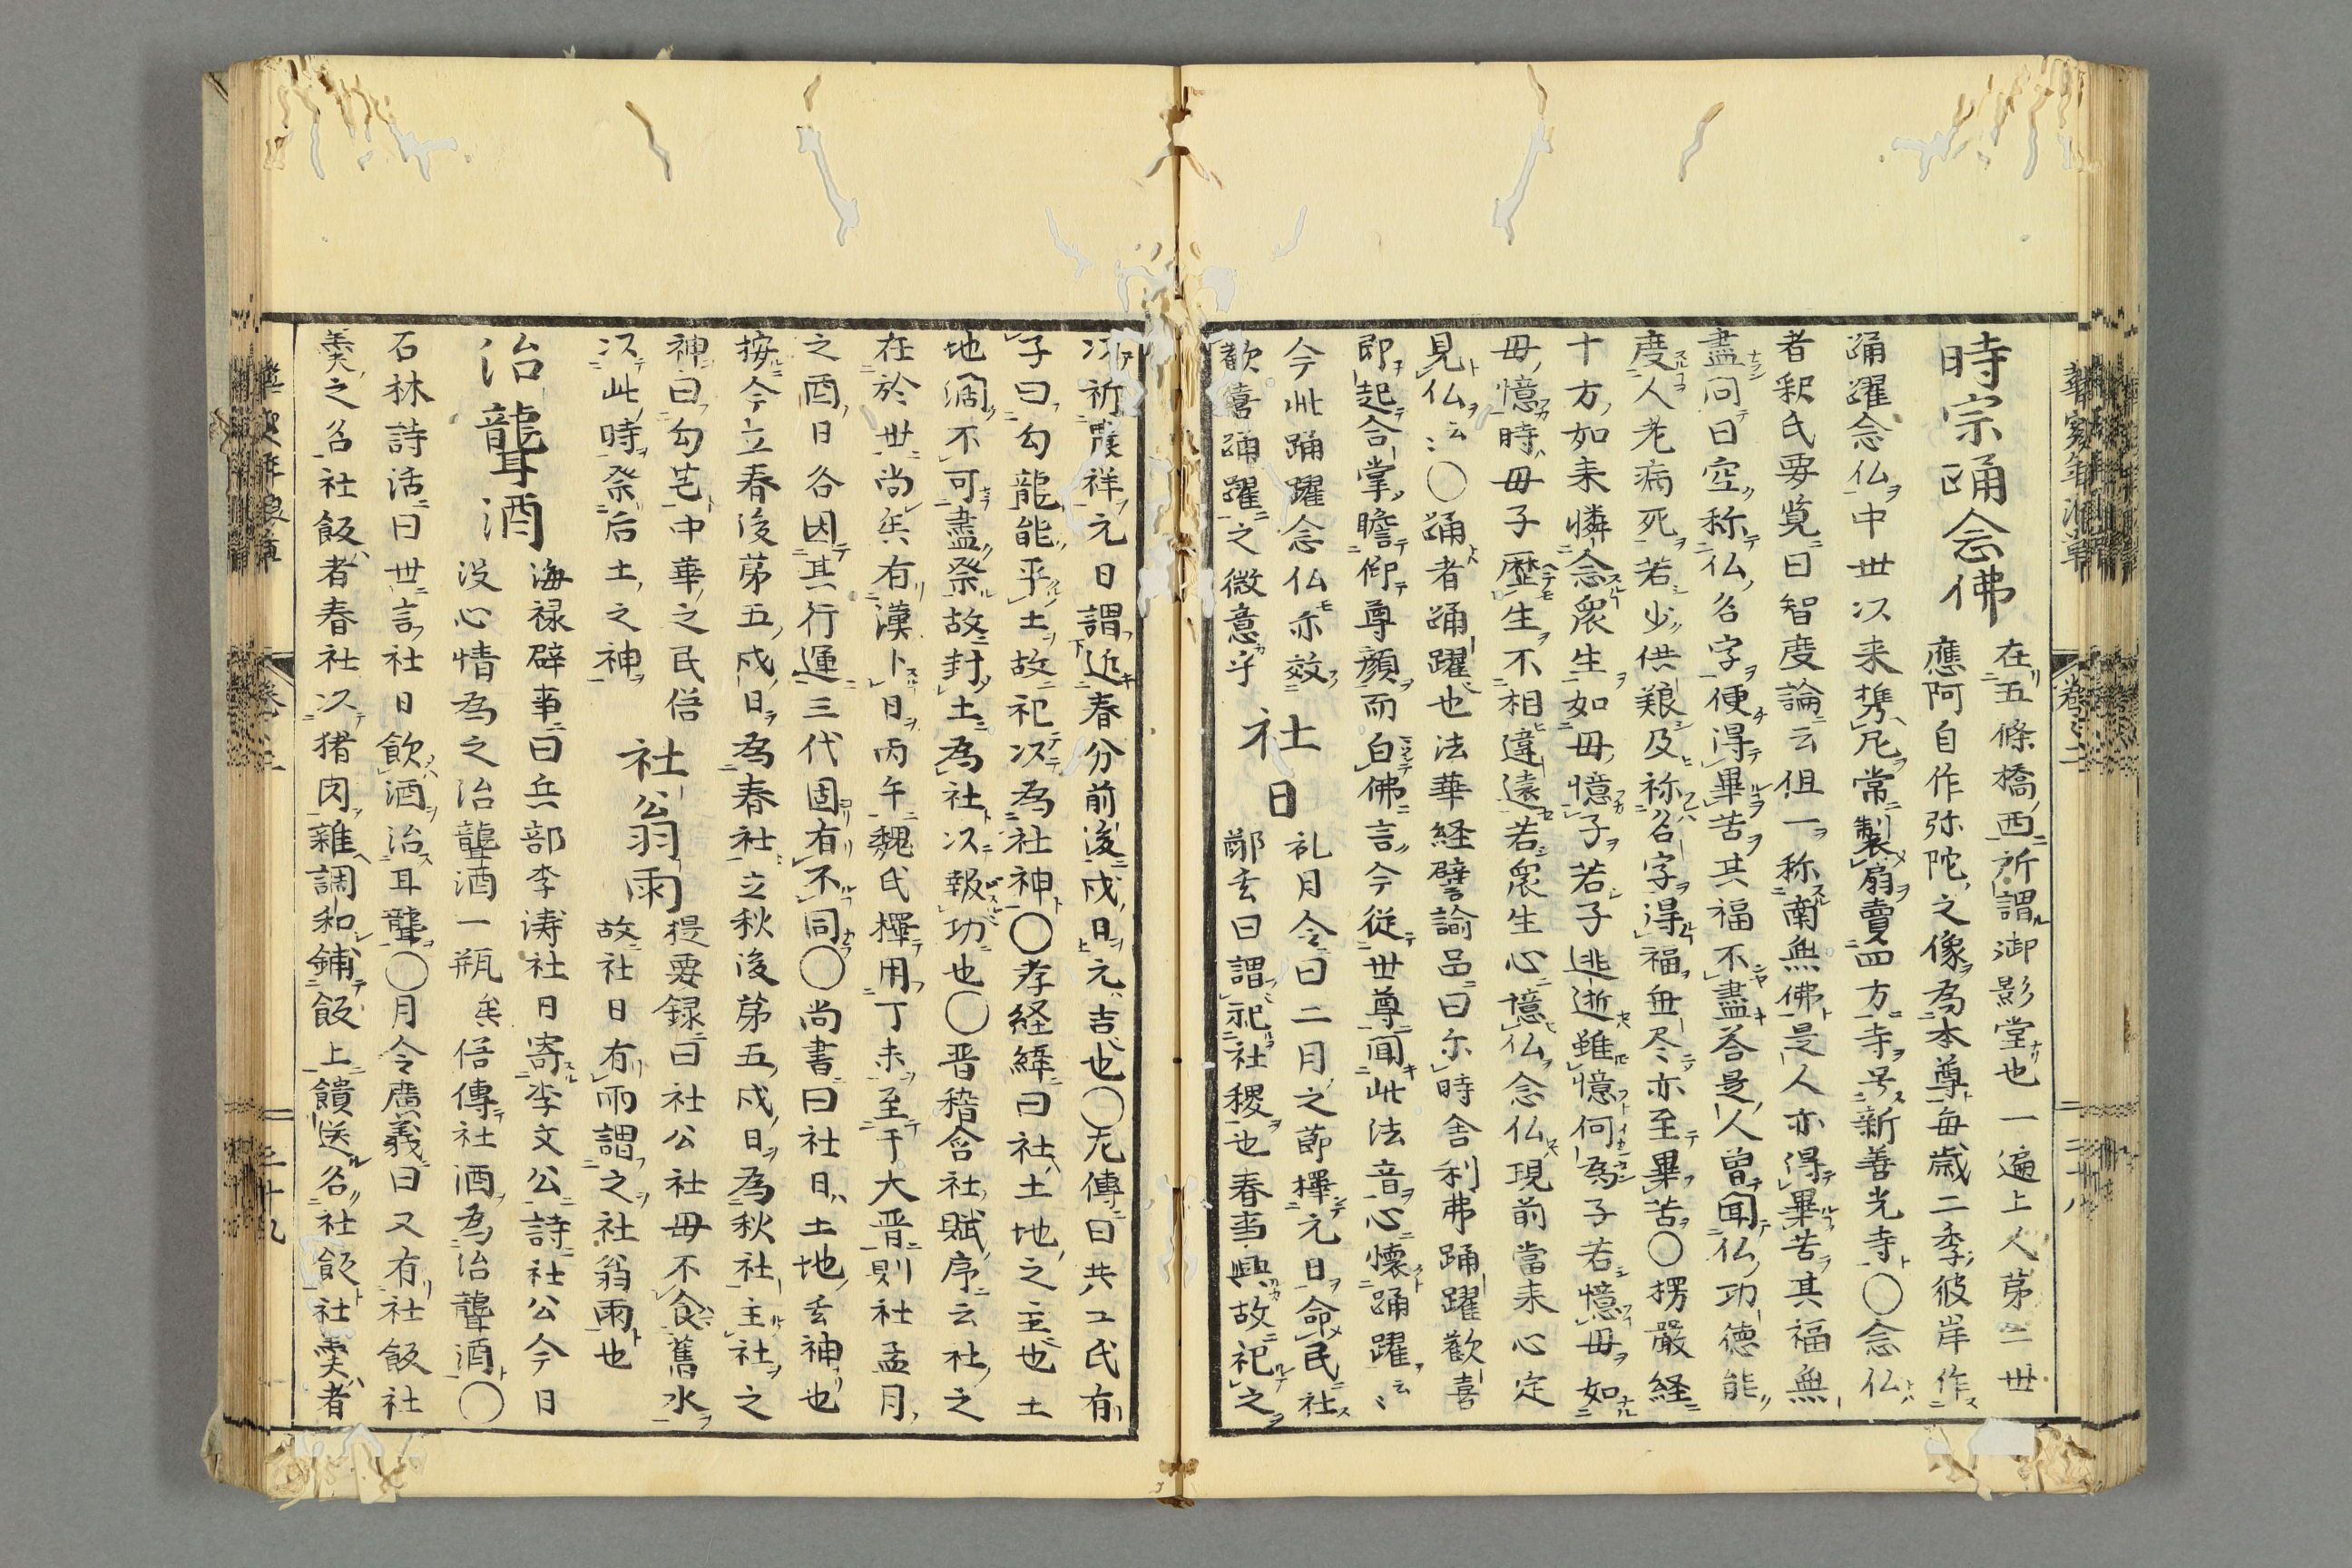 時宗踊念佛
在五條橋西所謂御影堂也一遍上人第二世
應阿自作弥陀之像為本尊毎歳二季彼岸作
踊躍念仏中世以来携凡常製扇賣四方寺号新善光寺〇念仏
者釈氏要覧曰智度論云但一称南無佛是人亦得畢苦其福無
盡问曰空称仏名字便得畢苦其福不盡荅是人曽聞仏功德能
度人老病死若少供養及称名字得福無尽亦至畢苦〇楞嚴経
十方如来憐念衆生如母憶子若子逃逝雖憶何為子若憶母如
母憶時母子歷生不相違遠若衆生心憶仏念仏現前當来心定
見仏云〻〇踊者踊躍也法華経譬諭品曰尓時舎利弗踊躍歡喜
即起合掌瞻仰尊顔而白佛言今從世尊聞此法音心懐踊躍云〻
今此踊躍念仏亦效
歡喜踊躍之微意乎
社日
礼月令曰二月之節擇元日命民社
鄭玄曰謂祀社稷也春事興故祀之
以祈農祥元日謂近春分前後戍日元吉也〇左傳曰共工氏有
子曰勾龍能平土故祀以為社神〇孝経緯曰社土地之主也土
地濶不可盡祭故封土為社以報功也〇晋稽含社賦序云社之
在於世尚矣有漢卜日丙午魏氏擇用丁未至于大晋則社孟月
之酉日各因其行運三代固有不同〇尚書曰社日土地玄神也
按今立春後第五戍日為春社立秋後第五戍日為秋社主社之
神曰勾芒中華之民俗
以此時祭后土之神
社翁雨
提要録曰社公社母不食舊水
故社日有雨謂之社翁雨也
治聾酒
海禄碎事曰兵部李涛社日寄李文公詩社公今日
没心情為之治聾酒一瓶矣俗傳社酒為治聾酒〇
石林詩活曰世言社日飲酒治耳聾〇月令廣義曰又有社飯社
羹之名社飯者春社以猪肉雜調和鋪飯上饋送名社飯社羹者